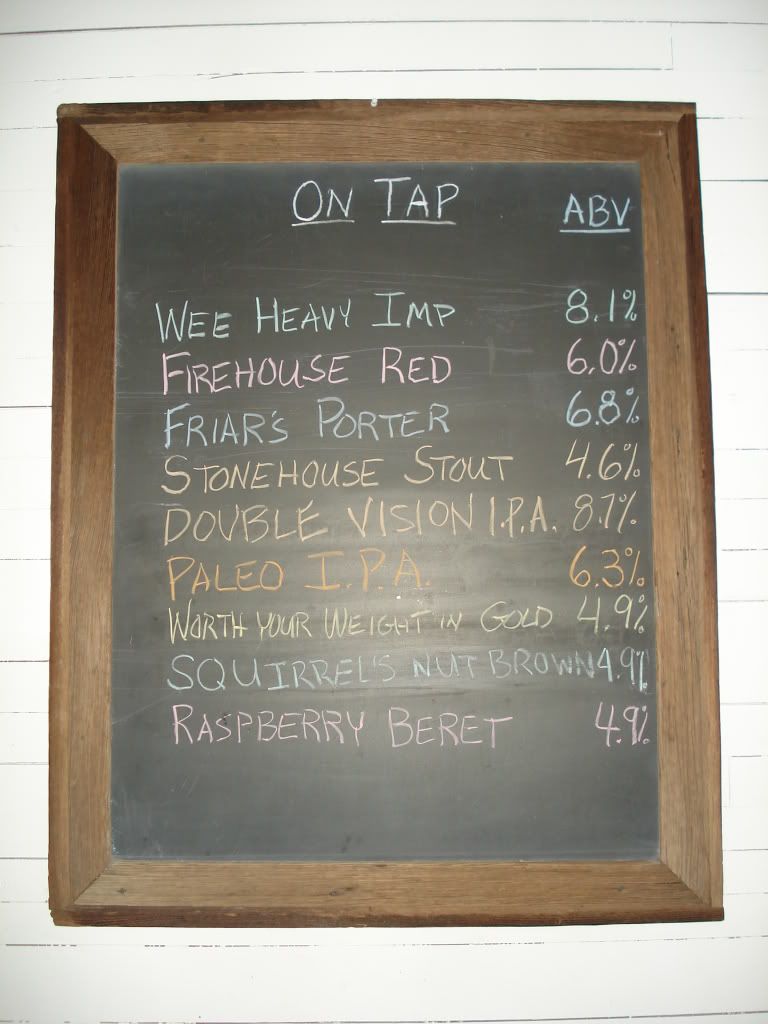 ON TAP ABV
WEE HEAVY IMP 8.1%
FIREHOUSE RED 6.0%
FRIAR'S PORTER 6.8%
STONEHOUSE STOUT 4.6%
DOUBLE VISION I.P.A. 8.7%
PALEO I.P.A. 6.3%
WORTH YOUR WEIGHT IN GOLD 4.9%
SQUIRREL'S NUT BROWN 4.9%
RASPBERRY BERET 4.9%